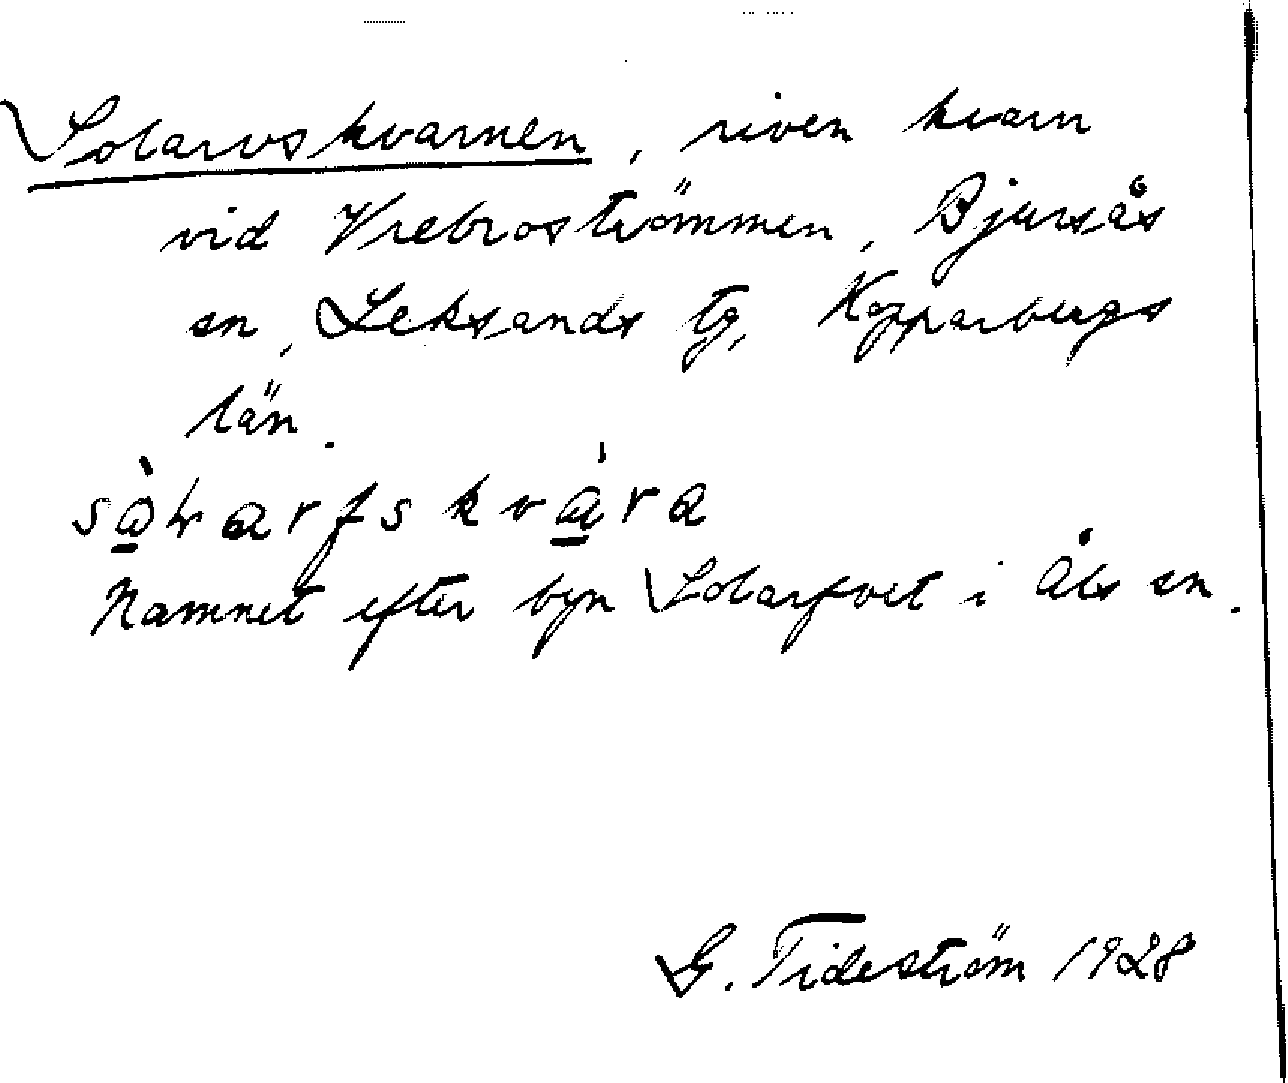 Solarvskvarnen, riven kvarn
vid Vrebroströmmen, Bjursås
sn, Leksands tg, Kopparbergs
län.
Namnet efter byn Solarfvet i Åls sn.
G. Tideström 1928